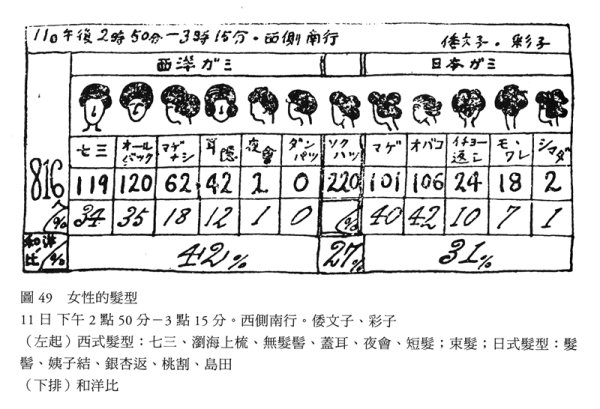 11日午後2時50分－3時15分・西側南行 倭文子・彩子
西洋ガミ 日本ガミ
七三 オールバック マゲナシ 耳隠 夜會 ダンパツ ソクハツ マゲ オバコ イチョー返こ モヽワレ シマダ
816人 119 120 62 42 2 0 220 101 106 24 18 2
% 34 35 18 12 1 0 % 40 42 10 7 1
和洋比% 42% 27% 31%
圖 49 女性的髮型
11 日 下午 2 點 50 分－3 點 15 分。西側南行。倭文子、彩子
（左起）西式髮型：七三、瀏海上梳、無髮髻、蓋耳、夜會、短髮；束髮；日式髮型：髮
髻、姨子結、銀杏返、桃割、島田
（下排）和洋比